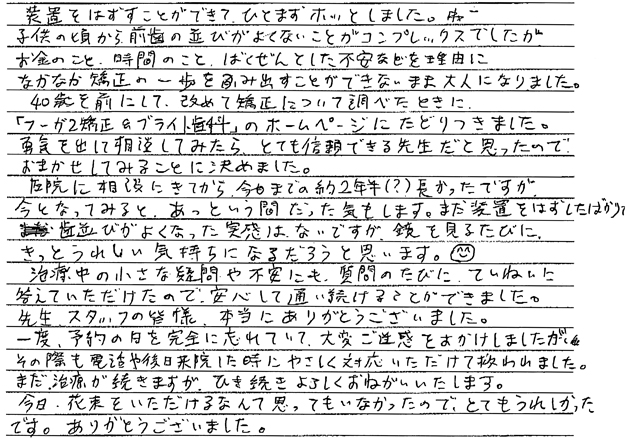 装置をはずすことができて、ひとまずホッとしました。
子供の頃から前歯の並びがよくないことがコンプレックスでしたが
お金のこと、時間のこと、ばくぜんとした不安などを理由に
なかなか矯正の一歩を踏み出すことができないまま大人になりました。
40歳を前にして、改めて矯正について調べたときに、
「フーガ2矯正&ブライト歯科」のホームページにたどりつきました。
勇気を出して相談してみたら、とても信頼できる先生だと思ったので、
おまかせしてみることに決めました。
医院に相談にきてから今日までの約2年半(?)長かったですが
今となってみると、あっという間だった気もします。まだ装置をはずしたばかりで
歯並びがよくなった実感はないですが、鏡を見るたびに、
きっとうれしい気持ちになるだろうと思います。
治療中の小さな疑問や不安にも、質問のたびに、ていねいに
答えていただけたので、安心して通い続けることができました。
先生、スタッフの皆様、本当にありがとうございました。
一度、予約の日を完全に忘れていて、大変ご迷惑をおかけしましたが、
その際も電話や後日来院した時にやさしく対応いただけて救われました。
まだ治療が続きますが、ひき続きよろしくおねがいいたします。
今日、花束をいただけるなんて思ってもいなかったので、とてもうれしかった
です。ありがとうございました。